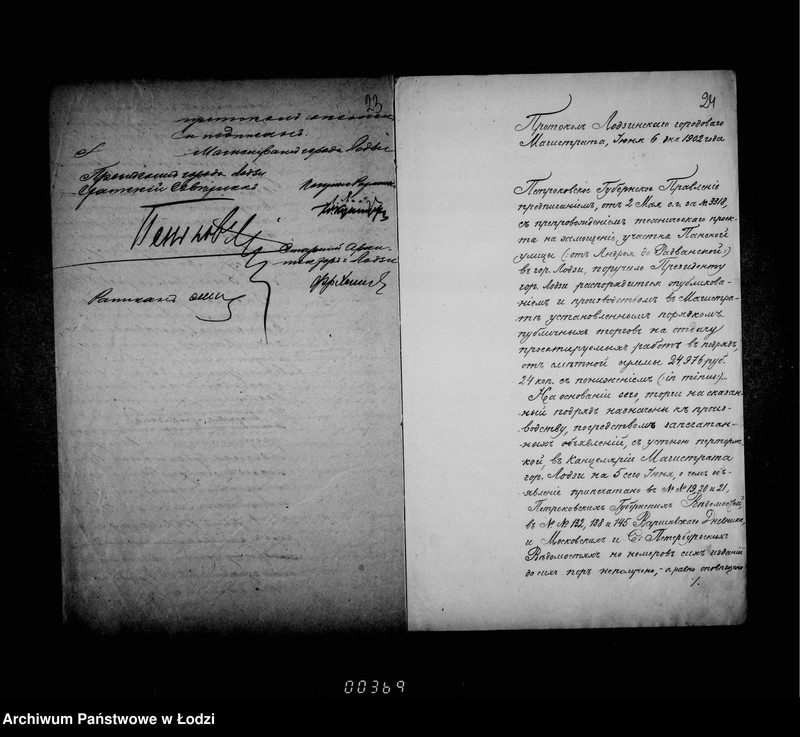 23
и подписанъ.
Магистратъ города Лодзи
Президентъ города Лодзи
Старшій Архи-
текторъ г. Лодзи
24
Протоколъ Лодзинскаго городоваго
Магистрата, Іюня 6 дня 1902 года
Петроковское Губернское Правленіе
предписаніемъ, отъ 2 Мая с.г. за № 3318,
съ препровожденіемъ техническаго проек-
та на замощеніе участка Панской
улицы (: отъ Андрея до Радванской :)
въ гор. Лодзи, поручило Президенту
гор. Лодзи распорядиться опубликова-
ніемъ и производствомъ въ Магистра-
тѣ установленнымъ порядкомъ
публичныхъ торговъ на отдачу
проектируемыхъ работъ въ подрядъ,
отъ смѣтной суммы 24,976 руб.
24 коп. съ пониженіемъ (: in minus :)
На основаніи сего, торги на сказан-
ный подрядъ назначены къ произ-
водству, посредствомъ запечатан-
ныхъ объявленій, съ устною переторж-
кой, въ Канцеляріи Магистрата
гор. Лодзи на 5 сего Іюня, о чемъ объ-
явленіе припечатано въ №№ 19, 20 и 21,
Петроковскихъ Губернскихъ Вѣдомостей,
въ №№ 122, 128 и 145 Варшавскаго Дневника,
и Московскихъ и С. Петербургскихъ
Вѣдомостяхъ но номеровъ сихъ изданій
до сихъ поръ неполучено, - а равно оповѣщено
./.
00369
Archiwum Państwowe w Łodzi